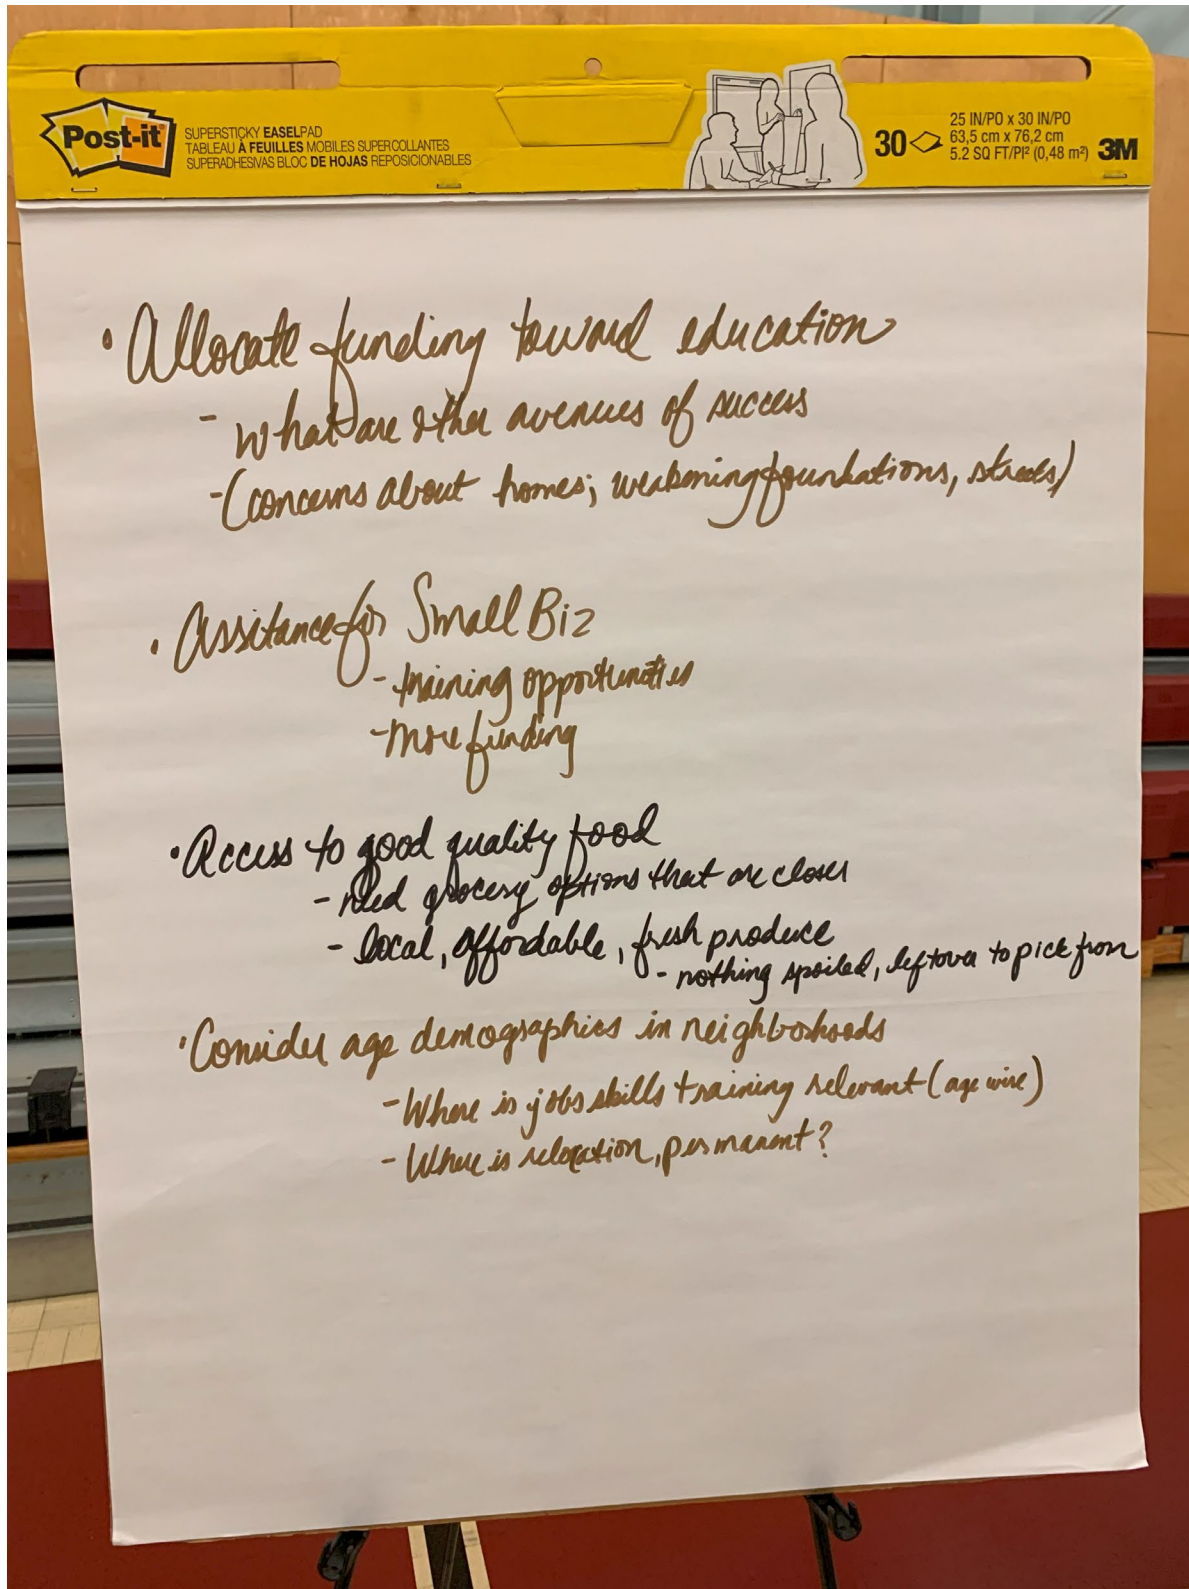 Post-it
SUPERSTICKY EASELPAD
TABLEAU À FEUILLES MOBILES SUPERCOLLANTES
SUPERADHESIVAS BLOC DE HOJAS REPOSICIONABLES
30
25 IN/PO x 30 IN/PO
63,5 cm x 76,2 cm
5.2 SQ FT/PI² (0,48 m²)
3M
• Allocate funding toward education
- What are other avenues of success
- (concerns about homes; weakening foundations, streets)
• Assitance for Small Biz
- training opportunities
- More funding
• Access to good quality food
- need grocery options that are closer
- local, affordable, fresh produce
- nothing spoiled, leftover to pick from
• Consider age demographics in neighborhoods
- Where is jobs skills training relevant (age wise)
- Where is relocation, permanent?